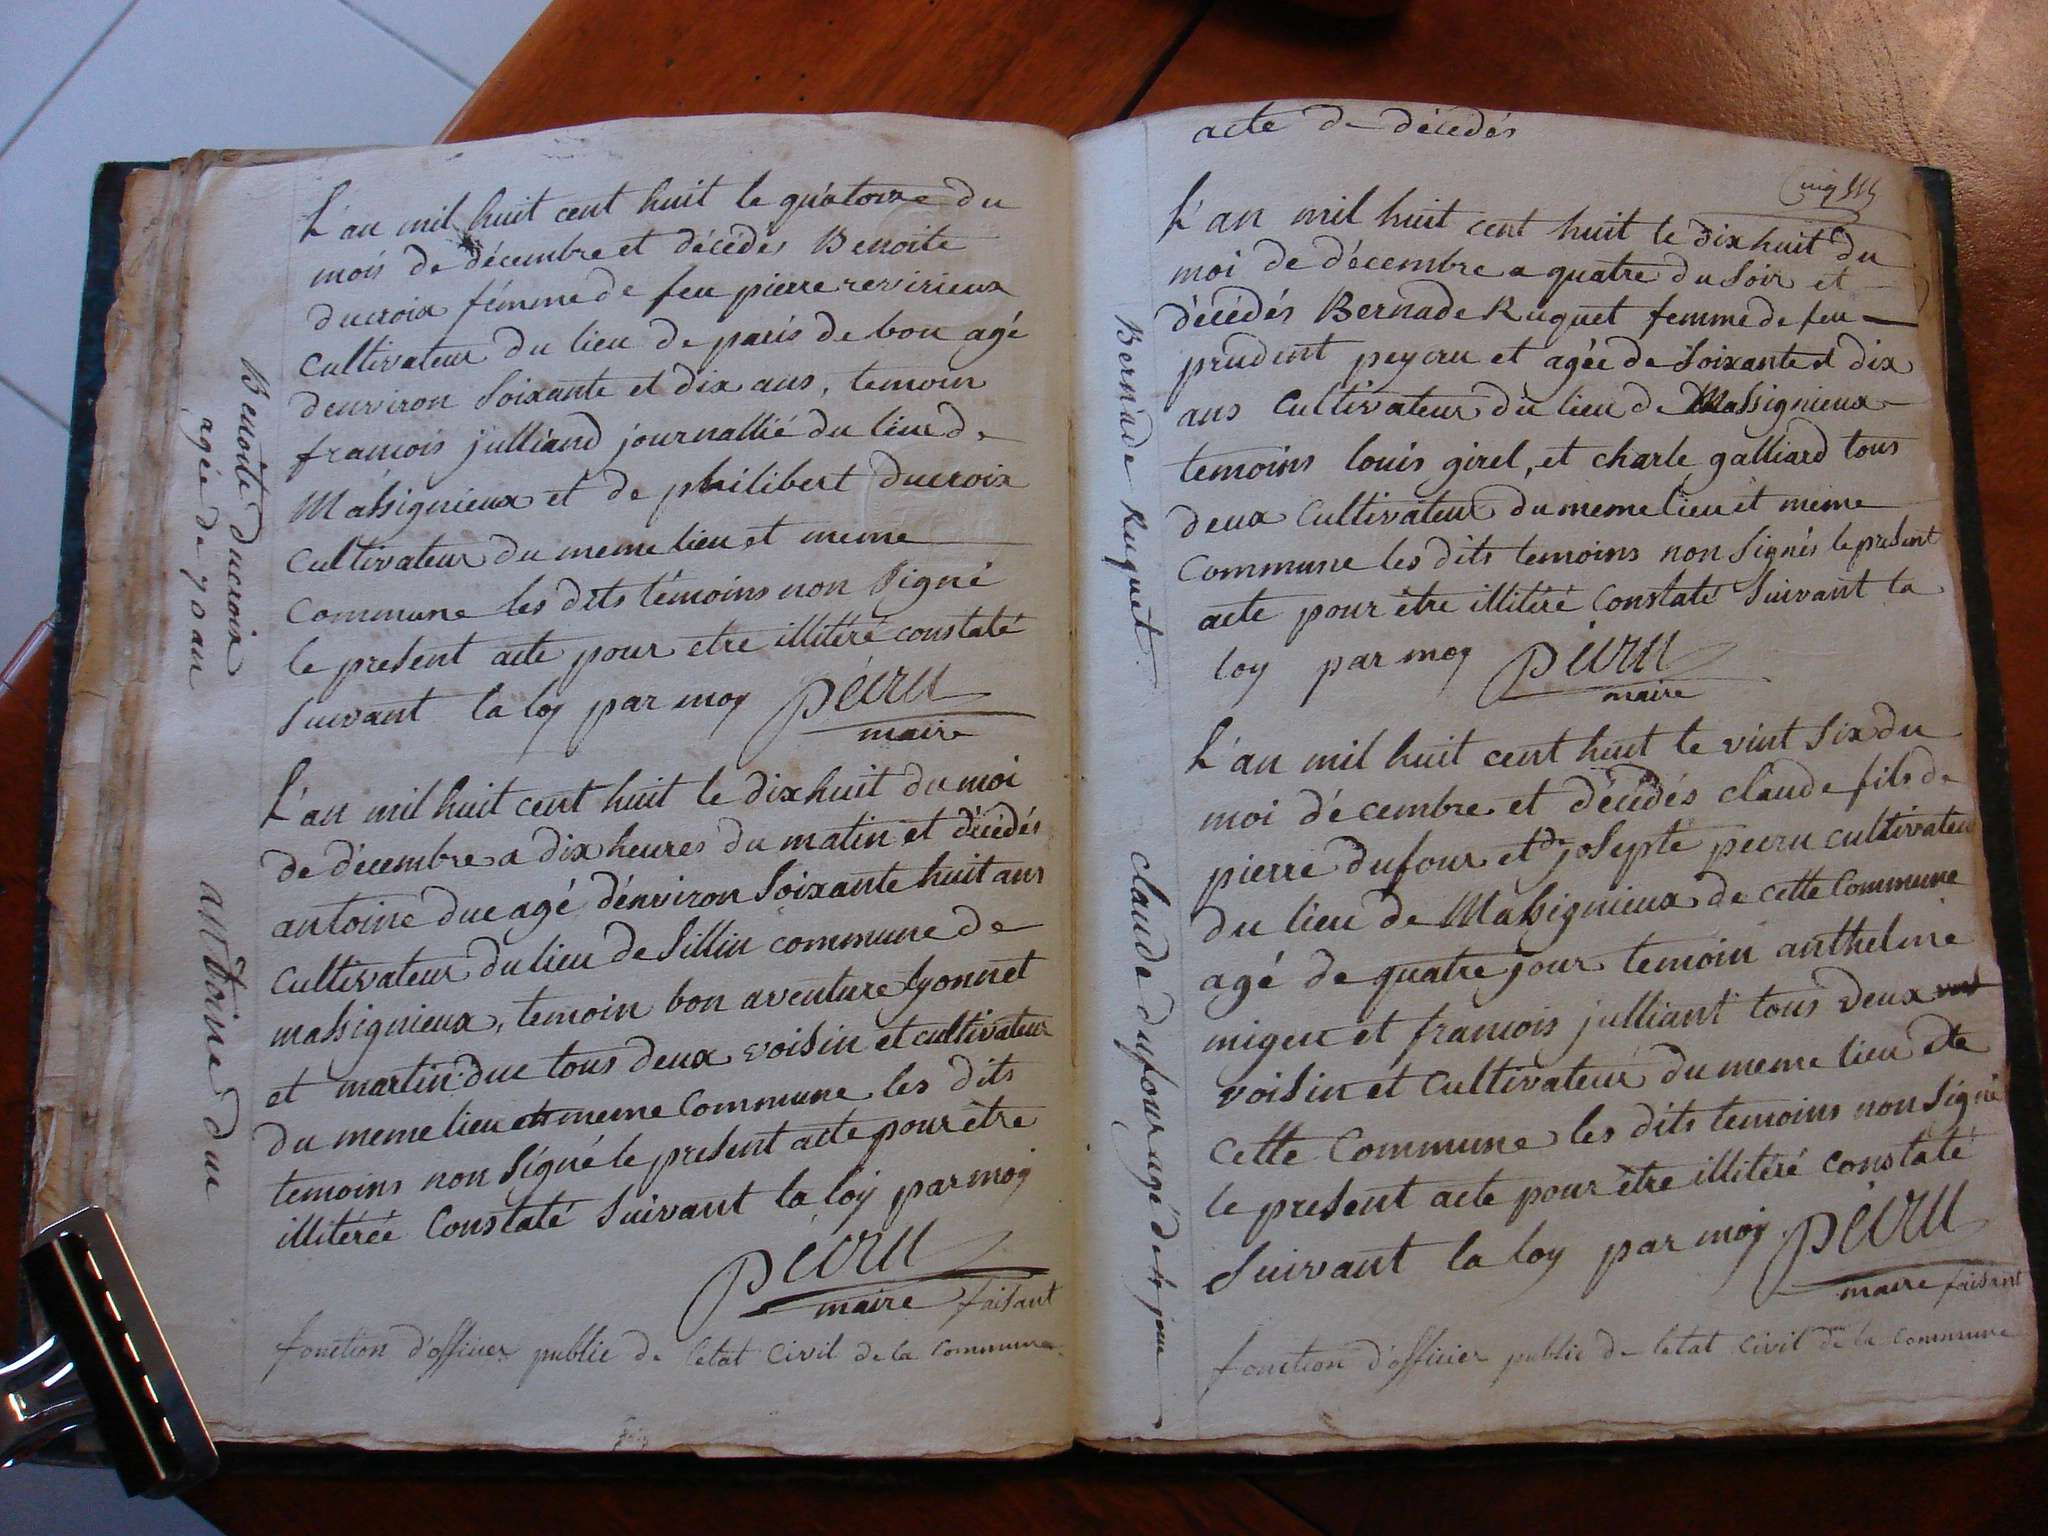 L'an mil huit cent huit le quatorze du
mois de décembre et décédés Benoite
ducroix fémme de feu pierre revirieux
cultivateur du lieu de paris de bon agé
denviron soixante et dix ans, temoin
francois julliand journallié du lieu de
Massignieux et de philibert ducroix
cultivateur du meme lieu et meme
commune les dits témoins non signé
le present acte pour etre illitéré constaté
suivant la loy par moy pécru
maire
Benoite ducroix
agée de 70 an
L'an mil huit cent huit le dix huit du moi
de décembre a dix heures du matin et décédés
antoine duc agé dénviron soixante huit ans
cultivateur du lieu de sillin commune de
massignieux, temoin bon aventure lyonnet
et martin duc tous deux voisin et cultivateur
du meme lieu et meme commune les dits
temoins non signé le present acte pour être
illitérée constaté suivant la loy par moy
pécru
maire faisant
fonction d'officier public de letat civil de la commune
antoine duc
acte de décédés
L'an mil huit cent huit le dix huit du
moi de décembre a quatre du soir et
décédés Bernade Ruguet femme de feu
prudent peycru et agée de soixante et dix
ans cultivateur du lieu de Massignieux
temoins louis girel, et charle galliard tous
deux cultivateur du meme lieu et meme
commune les dits temoins non signés le present
acte pour être illitéré constaté suivant la
loy par moy pécru
maire
Bernade Ruguet
L'an mil huit cent huit le vint six du
moi décembre et décédés claude fils de
pierre dufour et de josepte pecru cultivateur
du lieu de Massignieux de cette commune
agé de quatre jour temoin anthelme
migeu et francois julliant tous deux
voisin et cultivateur du meme lieu de
cette commune les dits temoins non signé
le present acte pour être illitéré constaté
suivant la loy par moy pécru
maire faisant
fonction d'officier public de letat civil de la commune
claude dufour agé de 4 jour